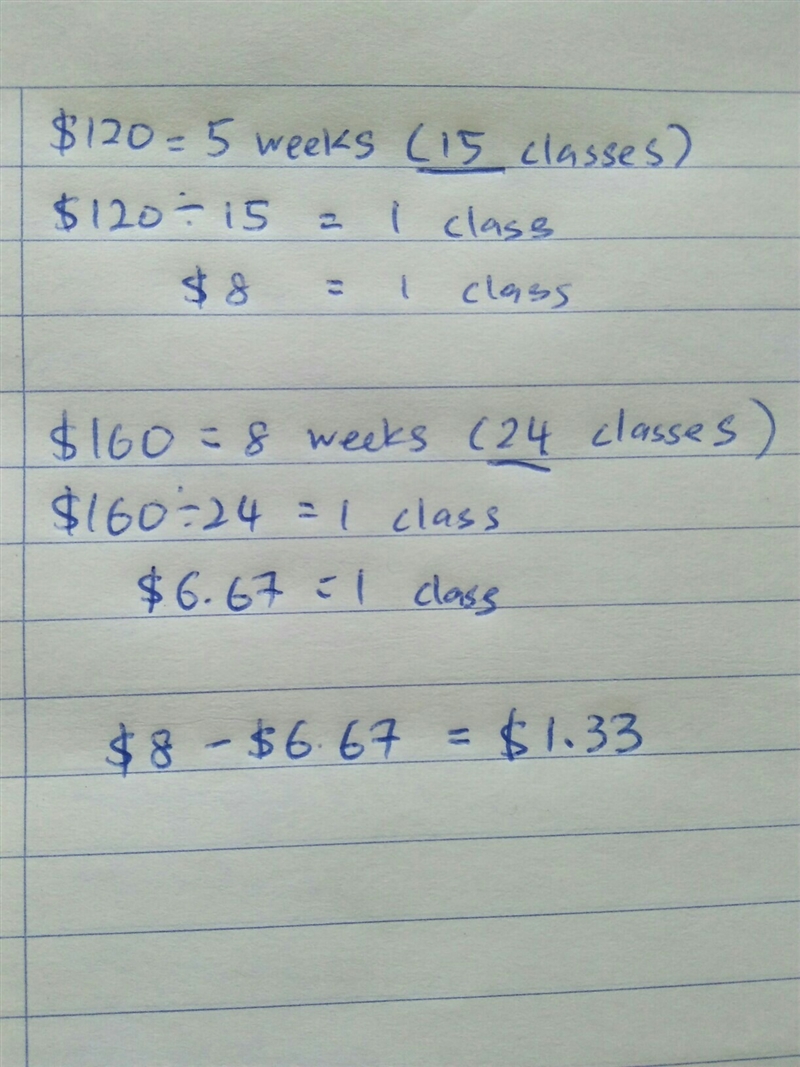 $120 = 5 weeks (15 classes)
$120 ÷ 15 = 1 class
$8 = 1 class
$160 = 8 weeks (24 classes)
$160 ÷ 24 = 1 class
$6.67 = 1 class
$8 - $6.67 = $1.33